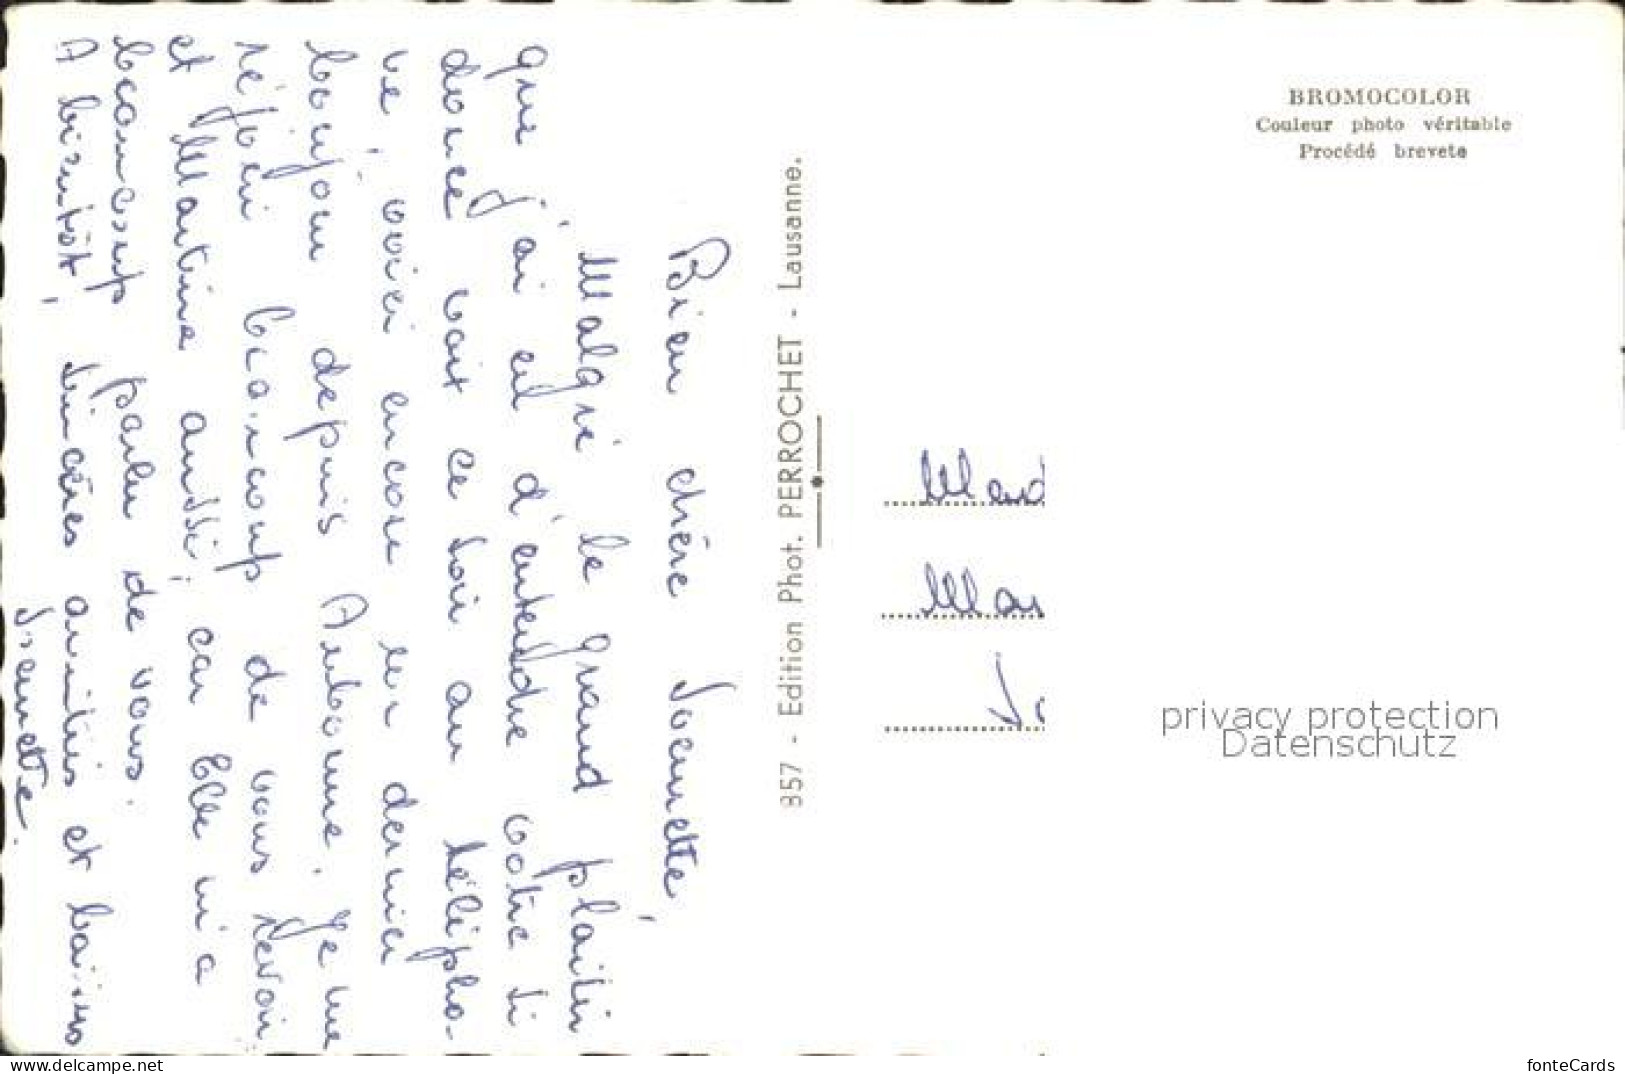 Bien chère
Malgré le grand plaisir
que j'ai eu d'entendre votre si
douce voix ce soir au télépho-
ne, voici encore un dernier
bonjour depuis Aubonne. Je me
réjoui beaucoup de vous revoir
et Martine aussi, car Elle m'a
beaucoup parler de vous.
A bientôt, sincères amitiés et baisers
857 - Edition Phot. PERROCHET - Lausanne.
BROMOCOLOR
Couleur photo véritable
Procédé brevete
privacy protection
Datenschutz
delcampe.net
fonteCards